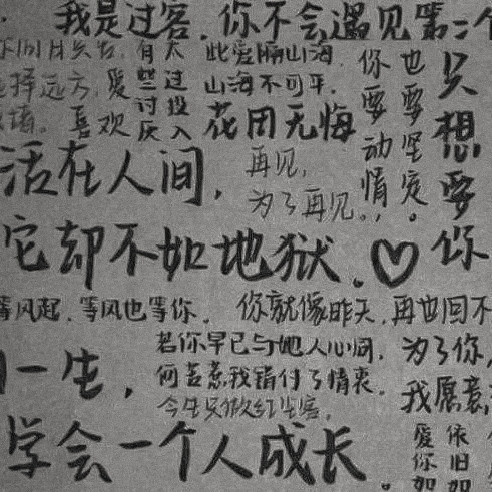 我是过客.你不会遇见第二个
选择远方,爱
喜欢
有太
些过
讨投
厌入
此爱隔山海.
山海不可平.
花田无悔
你要动情,
也要坚定。
只想要你
活在人间,
再见,
为了再见.
它却不如地狱.♡
等风起.等风也等你.
你就像昨天,再也回不
一生,
若你早已与他人心间,
何苦意我错付了情衷.
为了你,
我愿意
学会一个人成长.
爱你如
依旧如